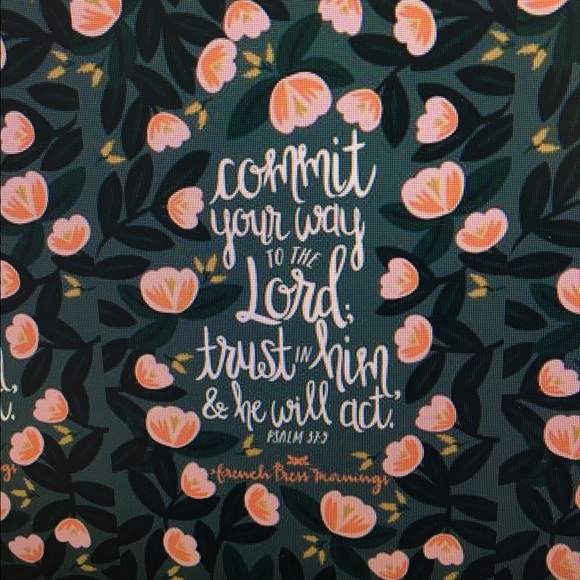 commit
your way
TO THE
Lord;
trust IN him,
& he will act.
PSALM 37:5
French Press Mornings